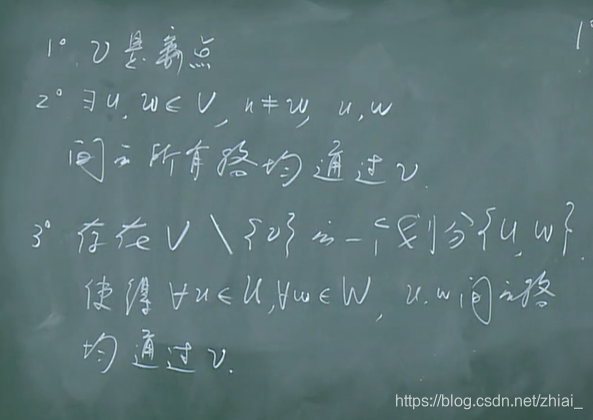 1° v是割点
1°
2° ∃u, w∈V, u≠w, u, w
间的所有路均通过v.
3° 存在V \ {v}的一个划分{U, W}.
使得∀u∈U, ∀w∈W, u.w间的路
均通过v.
https://blog.csdn.net/zhiai_